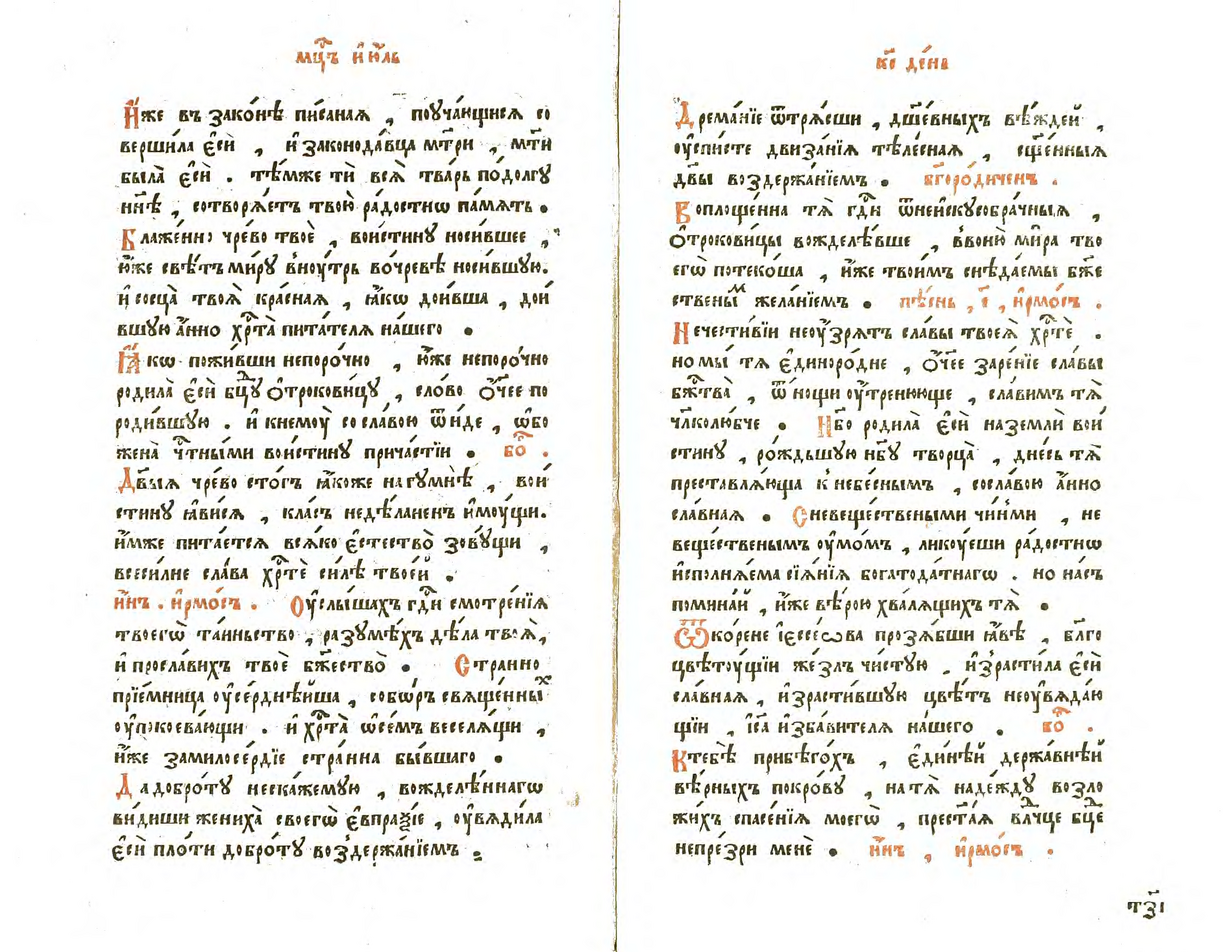 мц҃ъ і҆ю́ль
И҆̀же въ зако́нѣ пи́саная , поуча́ющися со
вершила є҆сѝ , и҆ законода́вца мт҃ри , мт҃и
была̀ є҆сѝ . тѣ́мже тѝ всѧ̀ тва́рь по́долгу
нн҃ѣ , сотворѧ́етъ твою̀ ра́достнѡ па́мѧть .
Блаже́нно чре́во твоѐ , вои́стинꙋ носи́вшее ,
ю҆́же свѣ́тъ ми́рꙋ внꙋ́трь во чре́вѣ носи́вшꙋю.
и҆ сосца̀ твоѧ̀ кра́сная , ꙗ҆́кѡ дои́вша , дои́
вшꙋю а҆́нно хрⷭ҇та̀ пита́телѧ на́шего .
Ꙗ҆́кѡ пожи́вши непоро́чно , ю҆́же непоро́чно
роди́ла є҆сѝ бц҃ꙋ ѻ҆трокови́цꙋ , сло́во ѻ҆́ч҃ее по
роди́вшꙋю . и҆ кнемꙋ̀ со сла́вою ѿи́де , ѡ҆бо
же́на чⷭ҇тными вои́стинꙋ прича́стїи . бо҃ .
Дв҃ыѧ чре́во сто́гъ ꙗ҆́коже на гꙋмнѣ̀ , вои́
стинꙋ ꙗ҆ви́сѧ , кла́съ недѣ́ланенъ и҆мꙋ́щи.
и҆́мже пита́етсѧ всѧ́ко є҆стество̀ зовꙋ́щи ,
всеси́лне сла́ва хрⷭ҇тѐ си́лѣ твое́й .
и҆́нъ . і҆рмо́съ . Оу҆слы́шахъ гдⷭ҇и смотре́нїѧ
твоегѡ̀ та́иньство , разꙋмѣ́хъ дѣ́ла твоѧ̀,
и҆ просла́вихъ твоѐ бж҃ество̀ . Стра́нно
прїе́мница оу҆се́рднѣйша , собѡ́ръ свѧще́нныⷯ
оу҆покоева́ющи . и҆ хрⷭ҇та̀ ѡ҆ се́мъ веселѧ́щи ,
и҆́же за милосе́рдїе стра́нна бы́вшаго .
Да добро́тꙋ неска́жемꙋю , вожделѣ́ннагѡ
ви́диши жениха̀ своегѡ̀ є҆впраѯі́е , оу҆вѧди́ла
є҆сѝ пло́ти добро́тꙋ воздержа́нїемъ .
к҃е де́нь
Дрема́нїе ѿтрѧ́сши , дш҃е́вныхъ вѣ́ждей ,
оу҆спи́сте двиза́нїѧ тѣле́сная , сщ҃е́нныѧ
дв҃ы воздержа́нїемъ . бг҃оро́диченъ .
Воплоще́нна тѧ̀ гдⷭ҇и ѿ неискꙋсобра́чныѧ ,
ѻ҆трокови́цы вожделѣ́вше , в воню̀ мѵ́ра тво
егѡ̀ потеко́ша , и҆́же твои́мъ снѣда́емы бж҃е
ственыⷨ жела́нїемъ . пѣ́снь , е҃ , і҆рмо́съ .
Нечести́вїи не оу҆́зрѧтъ сла́вы твоеѧ̀ хрⷭ҇тѐ .
но мы́ тѧ є҆диноро́дне , ѻ҆́ч҃ее заре́нїе сла́вы
бжⷭ҇тва̀ , ѿ но́щи оу҆́тренююще , сла́вимъ тѧ̀
чл҃колю́бче . Нб҃о роди́ла є҆сѝ на землѝ вои́
стинꙋ , ро́ждьшꙋю нб҃ꙋ творца̀ , дне́сь тѧ̀
преставлѧ́юща к небе́снымъ , со сла́вою а҆́нно
сла́вная . С невеще́ствеными чи́нми , не
веще́ственымъ оу҆мо́мъ , ликꙋ́еши ра́достнѡ
и҆сполнѧ́ема сїѧ́нїѧ богатода́тнагѡ . но на́съ
помина́й , и҆́же вѣ́рою хвалѧ́щихъ тѧ̀ .
Ѿ ко́рене і҆ессе́ѡва прозѧ́бши ꙗ҆́вѣ , бл҃го
цвѣтꙋ́щїи же́злъ чи́стꙋю . и҆зрасти́ла є҆сѝ
сла́вная , и҆зрасти́вшꙋю цвѣ́тъ неоувѧда́ю
щїи , і҆с҃а и҆зба́вителѧ на́шего . бо҃ .
К тебѣ̀ прибѣго́хъ , є҆ди́нѣй держа́внѣй
вѣ́рныхъ покро́вꙋ , на тѧ̀ наде́ждꙋ возло
жи́хъ спасе́нїѧ моегѡ̀ , прест҃а́ѧ влⷣчце бц҃е
непре́зри менѐ . и҆́нъ , і҆рмо́съ .
тз҃і